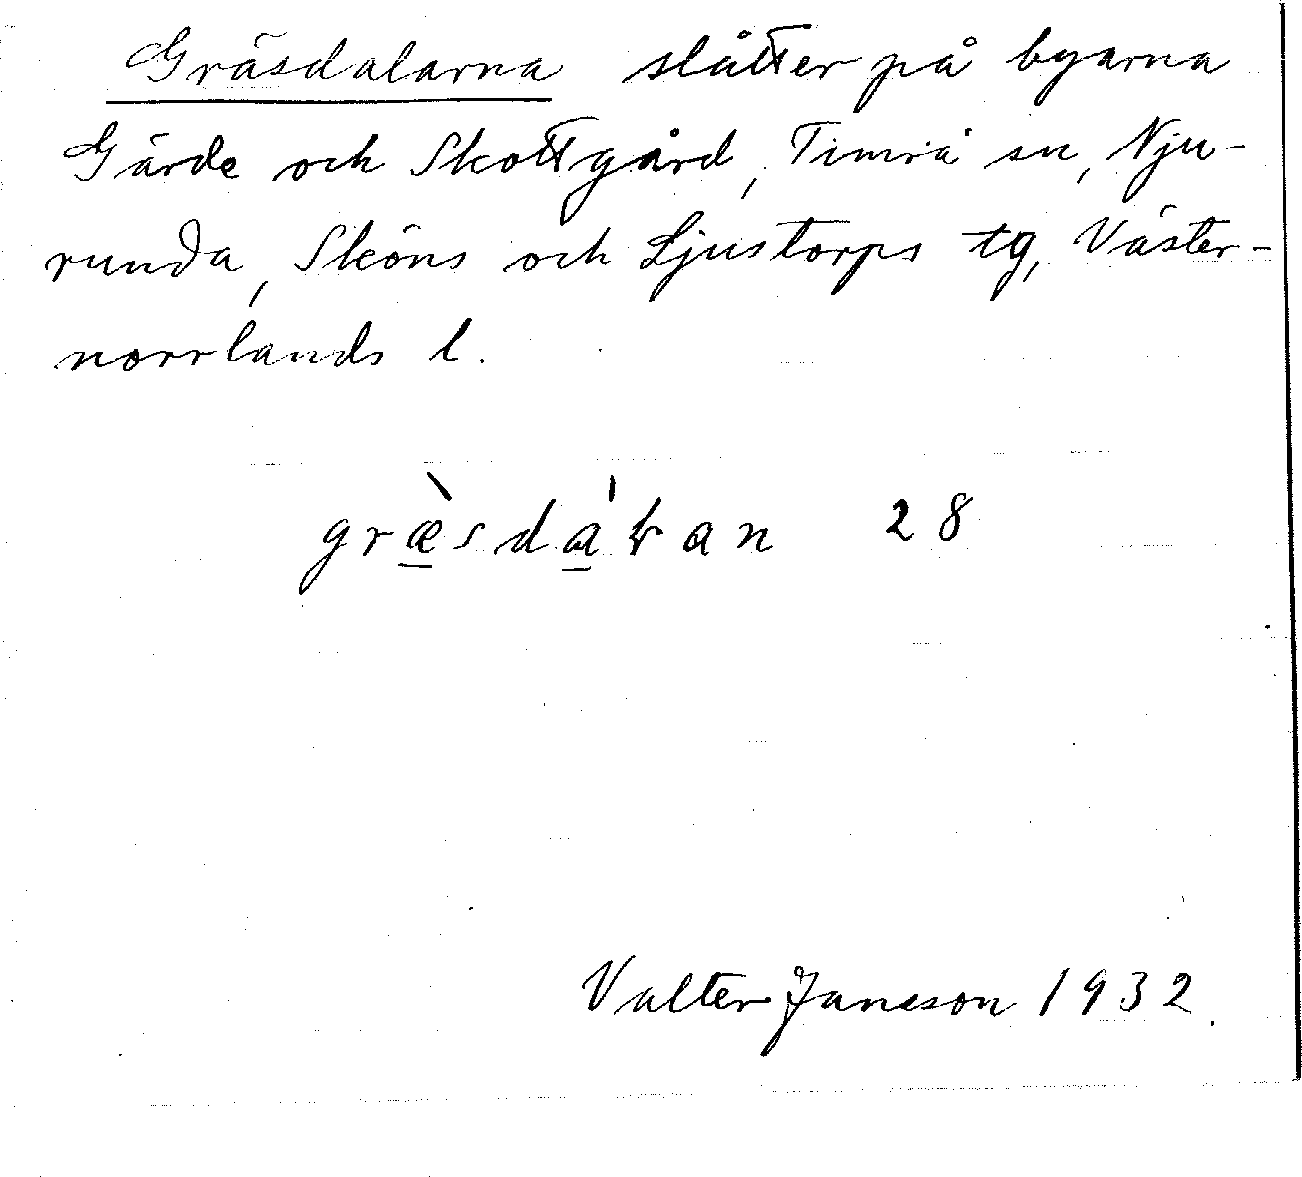 Gräsdalarna slåtter på byarna
Gärde och Skottgård, Timrå sn, Nju-
runda, Sköns och Ljustorps tg, Väster-
norrlands l.
græ̀sdáɽan 28
Valter Jansson 1932.